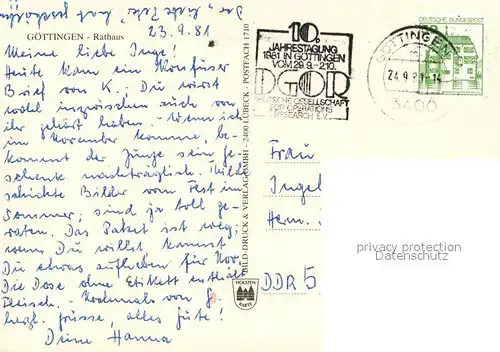 23.9.81
GÖTTINGEN - Rathaus
Meine liebe Inge!
Heute kam ein konfuser
Brief von K.; Du wirst
wohl inzwischen auch von
ihr gehört haben. - Wenn ich
im November komme, be-
kommt der Junge sein Ge-
schenk nachträglich. Hilde
schickte Bilder vom Fest im
Sommer; sind ja toll ge-
raten. Das Paket ist weg;
wenn Du willst kannst
Du etwas aufheben für Nov.
Die Dose ohne Etikett enthält
Fleisch. - Nochmals von
herzl. Grüsse, alles Gute!
Deine Hanna
BILD-DRUCK & VERLAG GMBH - 2400 LÜBECK - POSTFACH 1710
HOLSTEN KARTE
10.
JAHRESTAGUNG
1981 IN GÖTTINGEN
VOM 29.9.-2.10.
DGOR
DEUTSCHE GESELLSCHAFT
FÜR OPERATIONS
RESEARCH E.V.
GÖTTINGEN
24.9.81-14
3400
DEUTSCHE BUNDESPOST
Frau
Ingeb
Herm.
DDR 5
privacy protection
Datenschutz